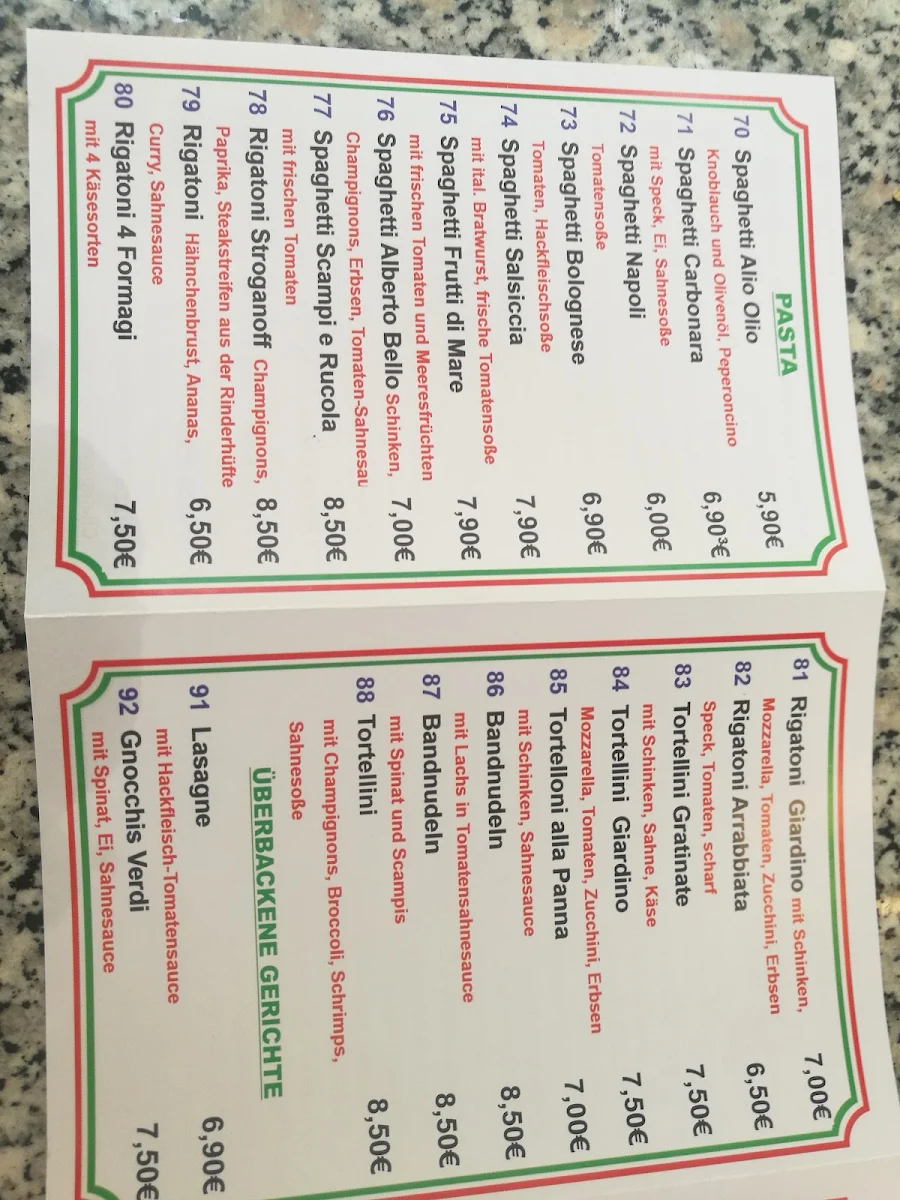 PASTA
70 Spaghetti Alio Olio 5,90€
Knoblauch und Olivenöl, Peperoncino
71 Spaghetti Carbonara 6,90³€
mit Speck, Ei, Sahnesoße
72 Spaghetti Napoli 6,00€
Tomatensoße
73 Spaghetti Bolognese 6,90€
Tomaten, Hackfleischsoße
74 Spaghetti Salsiccia 7,90€
mit ital. Bratwurst, frische Tomatensoße
75 Spaghetti Frutti di Mare 7,90€
mit frischen Tomaten und Meeresfrüchten
76 Spaghetti Alberto Bello Schinken, 7,00€
Champignons, Erbsen, Tomaten-Sahnesau
77 Spaghetti Scampi e Rucola 8,50€
mit frischen Tomaten
78 Rigatoni Stroganoff Champignons, 8,50€
Paprika, Steakstreifen aus der Rinderhüfte
79 Rigatoni Hähnchenbrust, Ananas, 6,50€
Curry, Sahnesauce
80 Rigatoni 4 Formagi 7,50€
mit 4 Käsesorten
81 Rigatoni Giardino mit Schinken, 7,00€
Mozzarella, Tomaten, Zucchini, Erbsen
82 Rigatoni Arrabbiata 6,50€
Speck, Tomaten, scharf
83 Tortellini Gratinate 7,50€
mit Schinken, Sahne, Käse
84 Tortellini Giardino 7,50€
Mozzarella, Tomaten, Zucchini, Erbsen
85 Tortelloni alla Panna 7,00€
mit Schinken, Sahnesauce
86 Bandnudeln 8,50€
mit Lachs in Tomatensahnesauce
87 Bandnudeln 8,50€
mit Spinat und Scampis
88 Tortellini 8,50€
mit Champignons, Broccoli, Schrimps,
Sahnesoße
ÜBERBACKENE GERICHTE
91 Lasagne 6,90€
mit Hackfleisch-Tomatensauce
92 Gnocchis Verdi 7,50€
mit Spinat, Ei, Sahnesauce